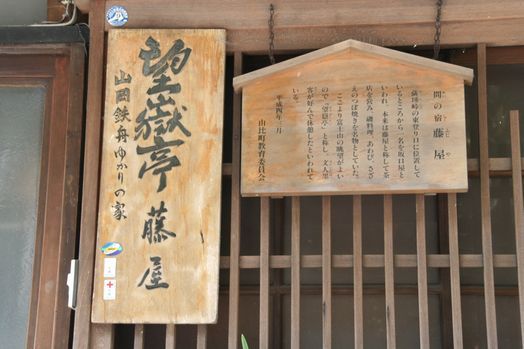 間の宿 藤屋
薩埵峠の東登り口に位置して
いるところから一名を坂口屋と
いわれ、本来は藤屋と称して茶
店を営み、磯料理、あわび、さざ
えのつぼ焼きを名物としていた。
ここより富士山の眺望がよい
ので「望嶽亭」と称し、文人墨
客が好んで休憩したといわれて
いる。
平成四年三月
由比町教育委員会
望嶽亭 藤屋
山岡鉄舟ゆかりの家